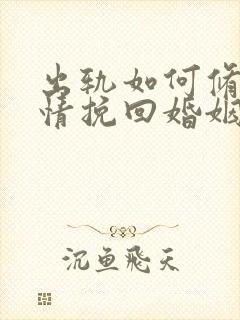 出轨如何修
情挽回婚姻
沉鱼飞天